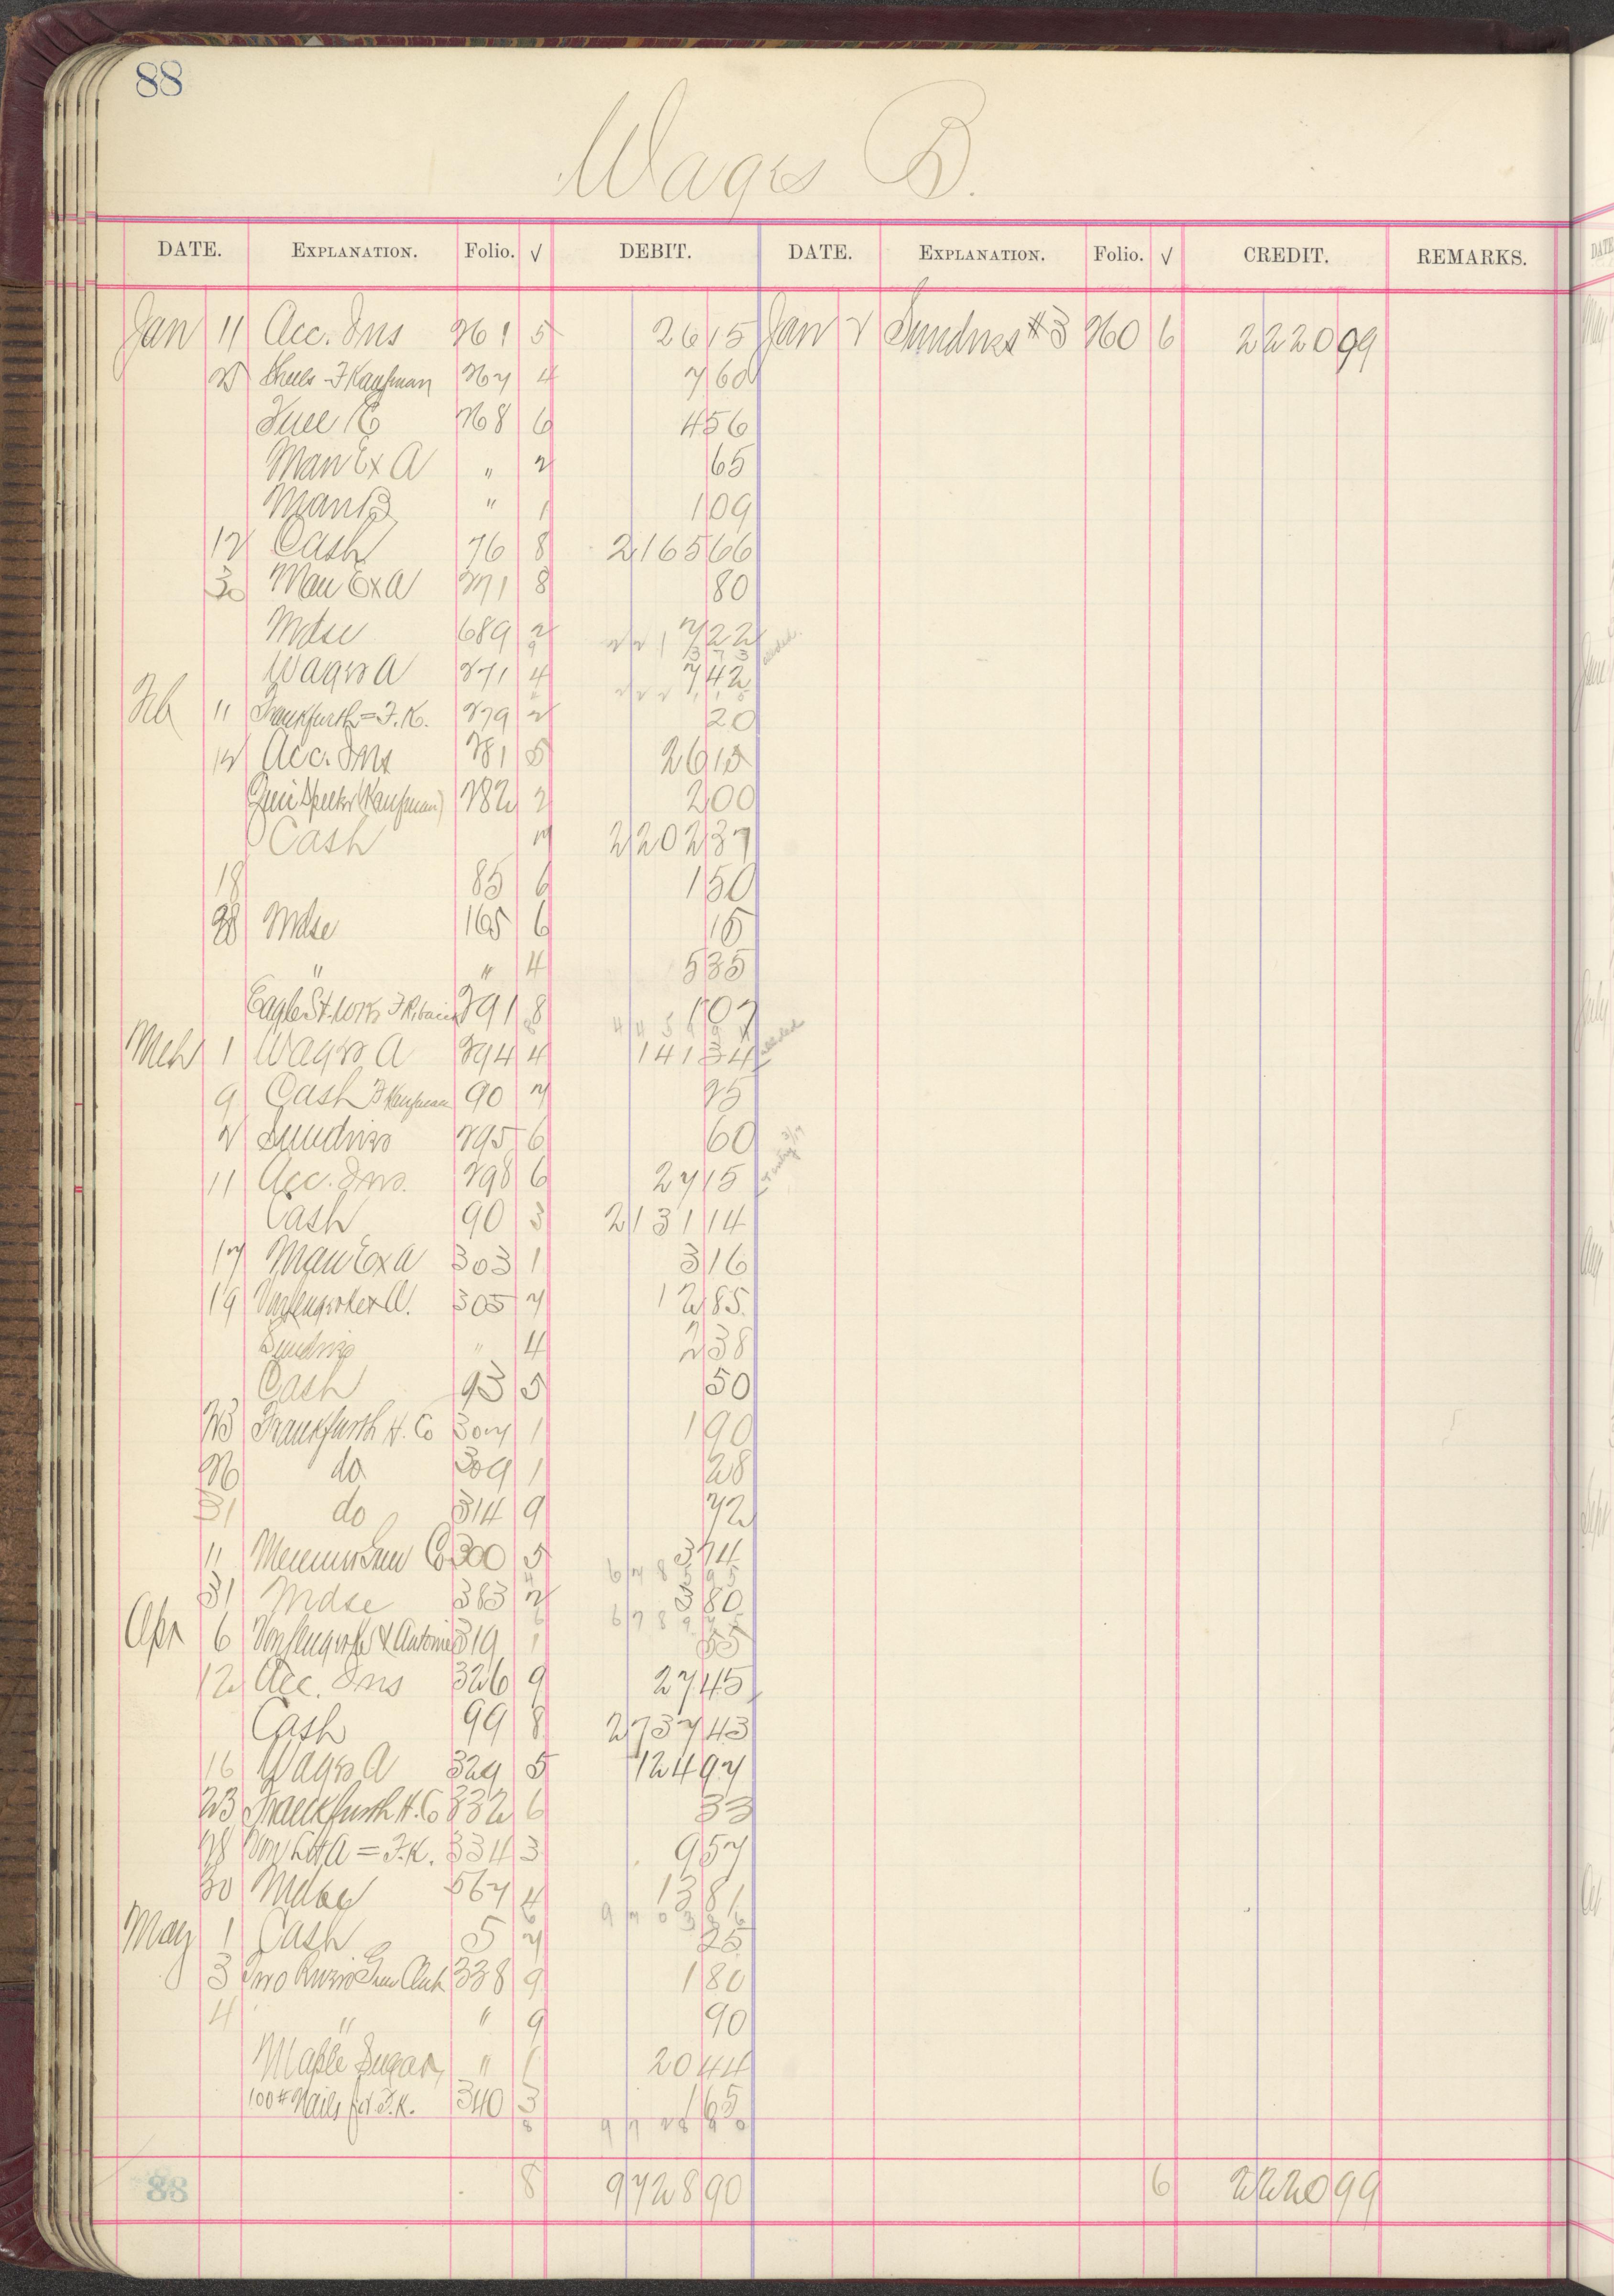 88
Wages B.
DATE. EXPLANATION. Folio. √ DEBIT. DATE. EXPLANATION. Folio. √ CREDIT. REMARKS.
Jan 11 Acc. Ins 261 5 26 15 Jan 2 Sundries #3 260 6 2220 99
25 F Kaufman 267 4 7 60
268 6 4 56
Man Ex A " 2 65
Man B " 1 1 09
12 Cash 76 8 2165 66
30 Man Ex A 271 8 80
Mdse 689 2 7 22
Wages A 271 4 7 42
Feb 11 Frankfurth = F.K. 279 2 20
12 Acc. Ins 281 5 26 15
(Kaufman) 282 2 2 00
Cash 7 2202 37
18 85 6 1 50
28 Mdse 165 6 15
" " 4 5 35
Eagle St. Wks 291 8 1 07
Mch 1 Wages A 294 4 141 34
9 Cash F Kaufman 90 7 25
2 Sundries 295 6 60
11 Acc. Ins. 298 6 27 15
Cash 90 3 2131 14
17 Man Ex A 303 1 3 16
19 A. 305 7 12 85
Sundries " 4 2 38
Cash 93 5 50
23 Frankfurth H. Co 307 1 1 90
26 do 309 1 28
31 do 314 9 72
11 Co 300 5 3 74
31 Mdse 363 2 3 80
67895
Apr 6 & Antoine 319 1 55
12 Acc. Ins 326 9 27 45
Cash 99 8 2737 43
16 Wages A 329 5 124 97
23 Frankfurth H. Co 332 6 33
28 A = F.K. 334 3 9 57
30 Mdse 567 4 13 81
May 1 Cash 5 7 25
3 Two Rivers Gun Club 338 9 1 80
4 " " 9 90
Maple Sugar " 1 20 44
100# Nails for F.K. 340 3 1 65
9728 90
88 8 9728 90 6 2220 99